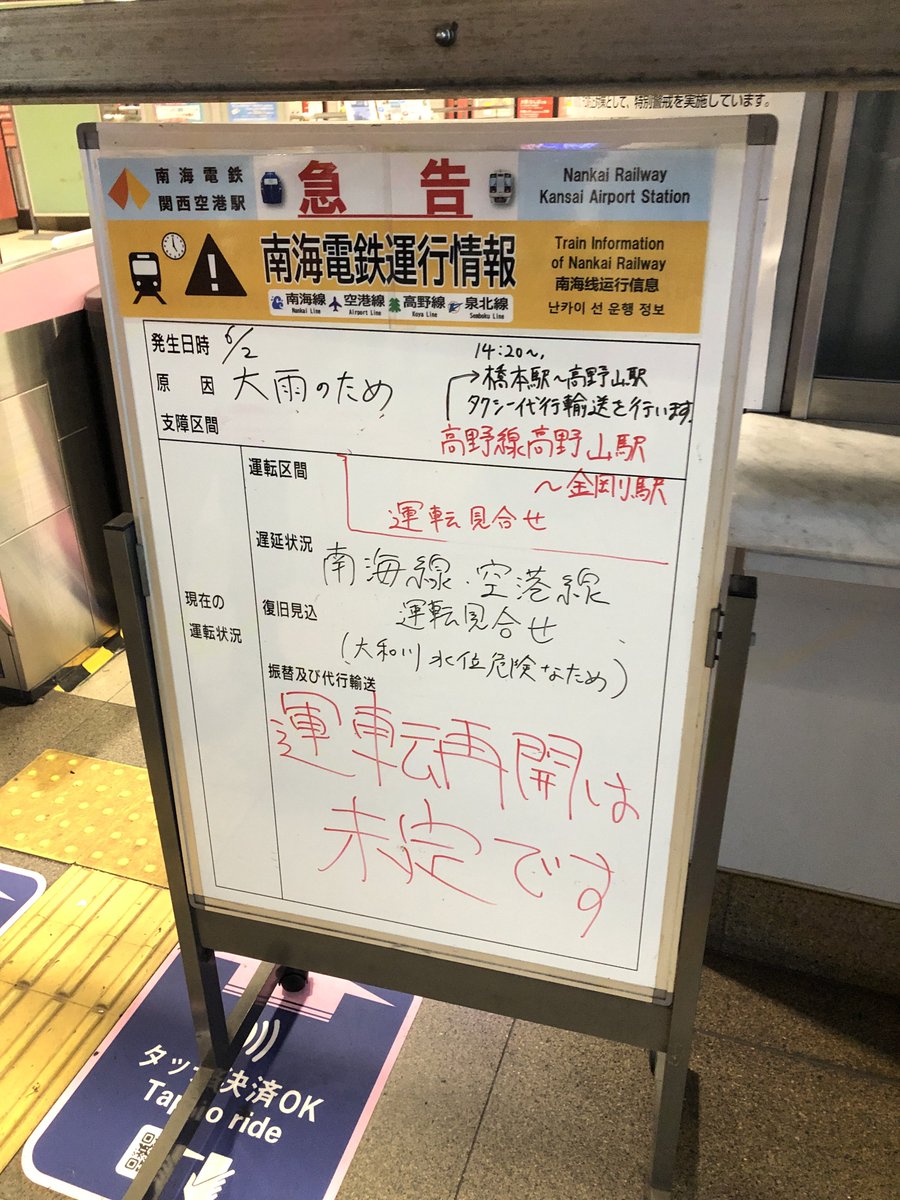 対策として、特別警戒を実施しています。
南海電鉄
関西空港駅
急告
Nankai Railway
Kansai Airport Station
南海電鉄運行情報
南海線 空港線 高野線 泉北線
Nankai Line Airport Line Koya Line Semboku Line
Train Information
of Nankai Railway
南海线运行信息
난카이 선 운행 정보
発生日時 6/2
原因 大雨のため
支障区間
14:20~,
→橋本駅~高野山駅
タクシー代行輸送を行います。
高野線高野山駅
~金剛駅
運転見合せ
現在の
運転状況
運転区間
遅延状況
南海線・空港線
復旧見込
運転見合せ
(大和川水位危険なため)
振替及び代行輸送
運転再開は
未定です
タッチ決済OK
Tap to ride